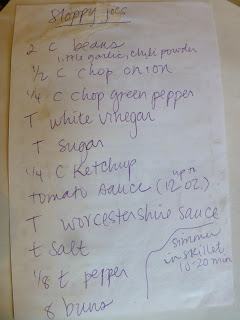 Sloppy joes
2 C beans
little garlic, chili powder
1/2 C chop onion
1/4 C chop green pepper
T white vinegar
T Sugar
1/4 C Ketchup
up to
tomato sauce (12 oz.)
T worcestershire sauce
t Salt
1/8 t pepper
8 buns
simmer
in skillet
10-20 min